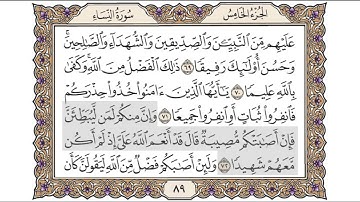 الجزء الخامس
سورة النساء
عَلَيْهِم مِّنَ ٱلنَّبِيِّۦنَ وَٱلصِّدِّيقِينَ وَٱلشُّهَدَآءِ وَٱلصَّٰلِحِينَۚ
وَحَسُنَ أُو۟لَٰٓئِكَ رَفِيقًا ٦٩ ذَٰلِكَ ٱلْفَضْلُ مِنَ ٱللَّهِۚ وَكَفَىٰ
بِٱللَّهِ عَلِيمًا ٧٠ يَٰٓأَيُّهَا ٱلَّذِينَ ءَامَنُوا۟ خُذُوا۟ حِذْرَكُمْ
فَٱنفِرُوا۟ ثُبَاتٍ أَوِ ٱنفِرُوا۟ جَمِيعًا ٧١ وَإِنَّ مِنكُمْ لَمَن لَّيُبَطِّئَنَّ
فَإِنْ أَصَٰبَتْكُم مُّصِيبَةٌ قَالَ قَدْ أَنْعَمَ ٱللَّهُ عَلَىَّ إِذْ لَمْ أَكُن
مَّعَهُمْ شَهِيدًا ٧٢ وَلَئِنْ أَصَٰبَكُمْ فَضْلٌ مِّنَ ٱللَّهِ لَيَقُولَنَّ كَأَن
٨٩